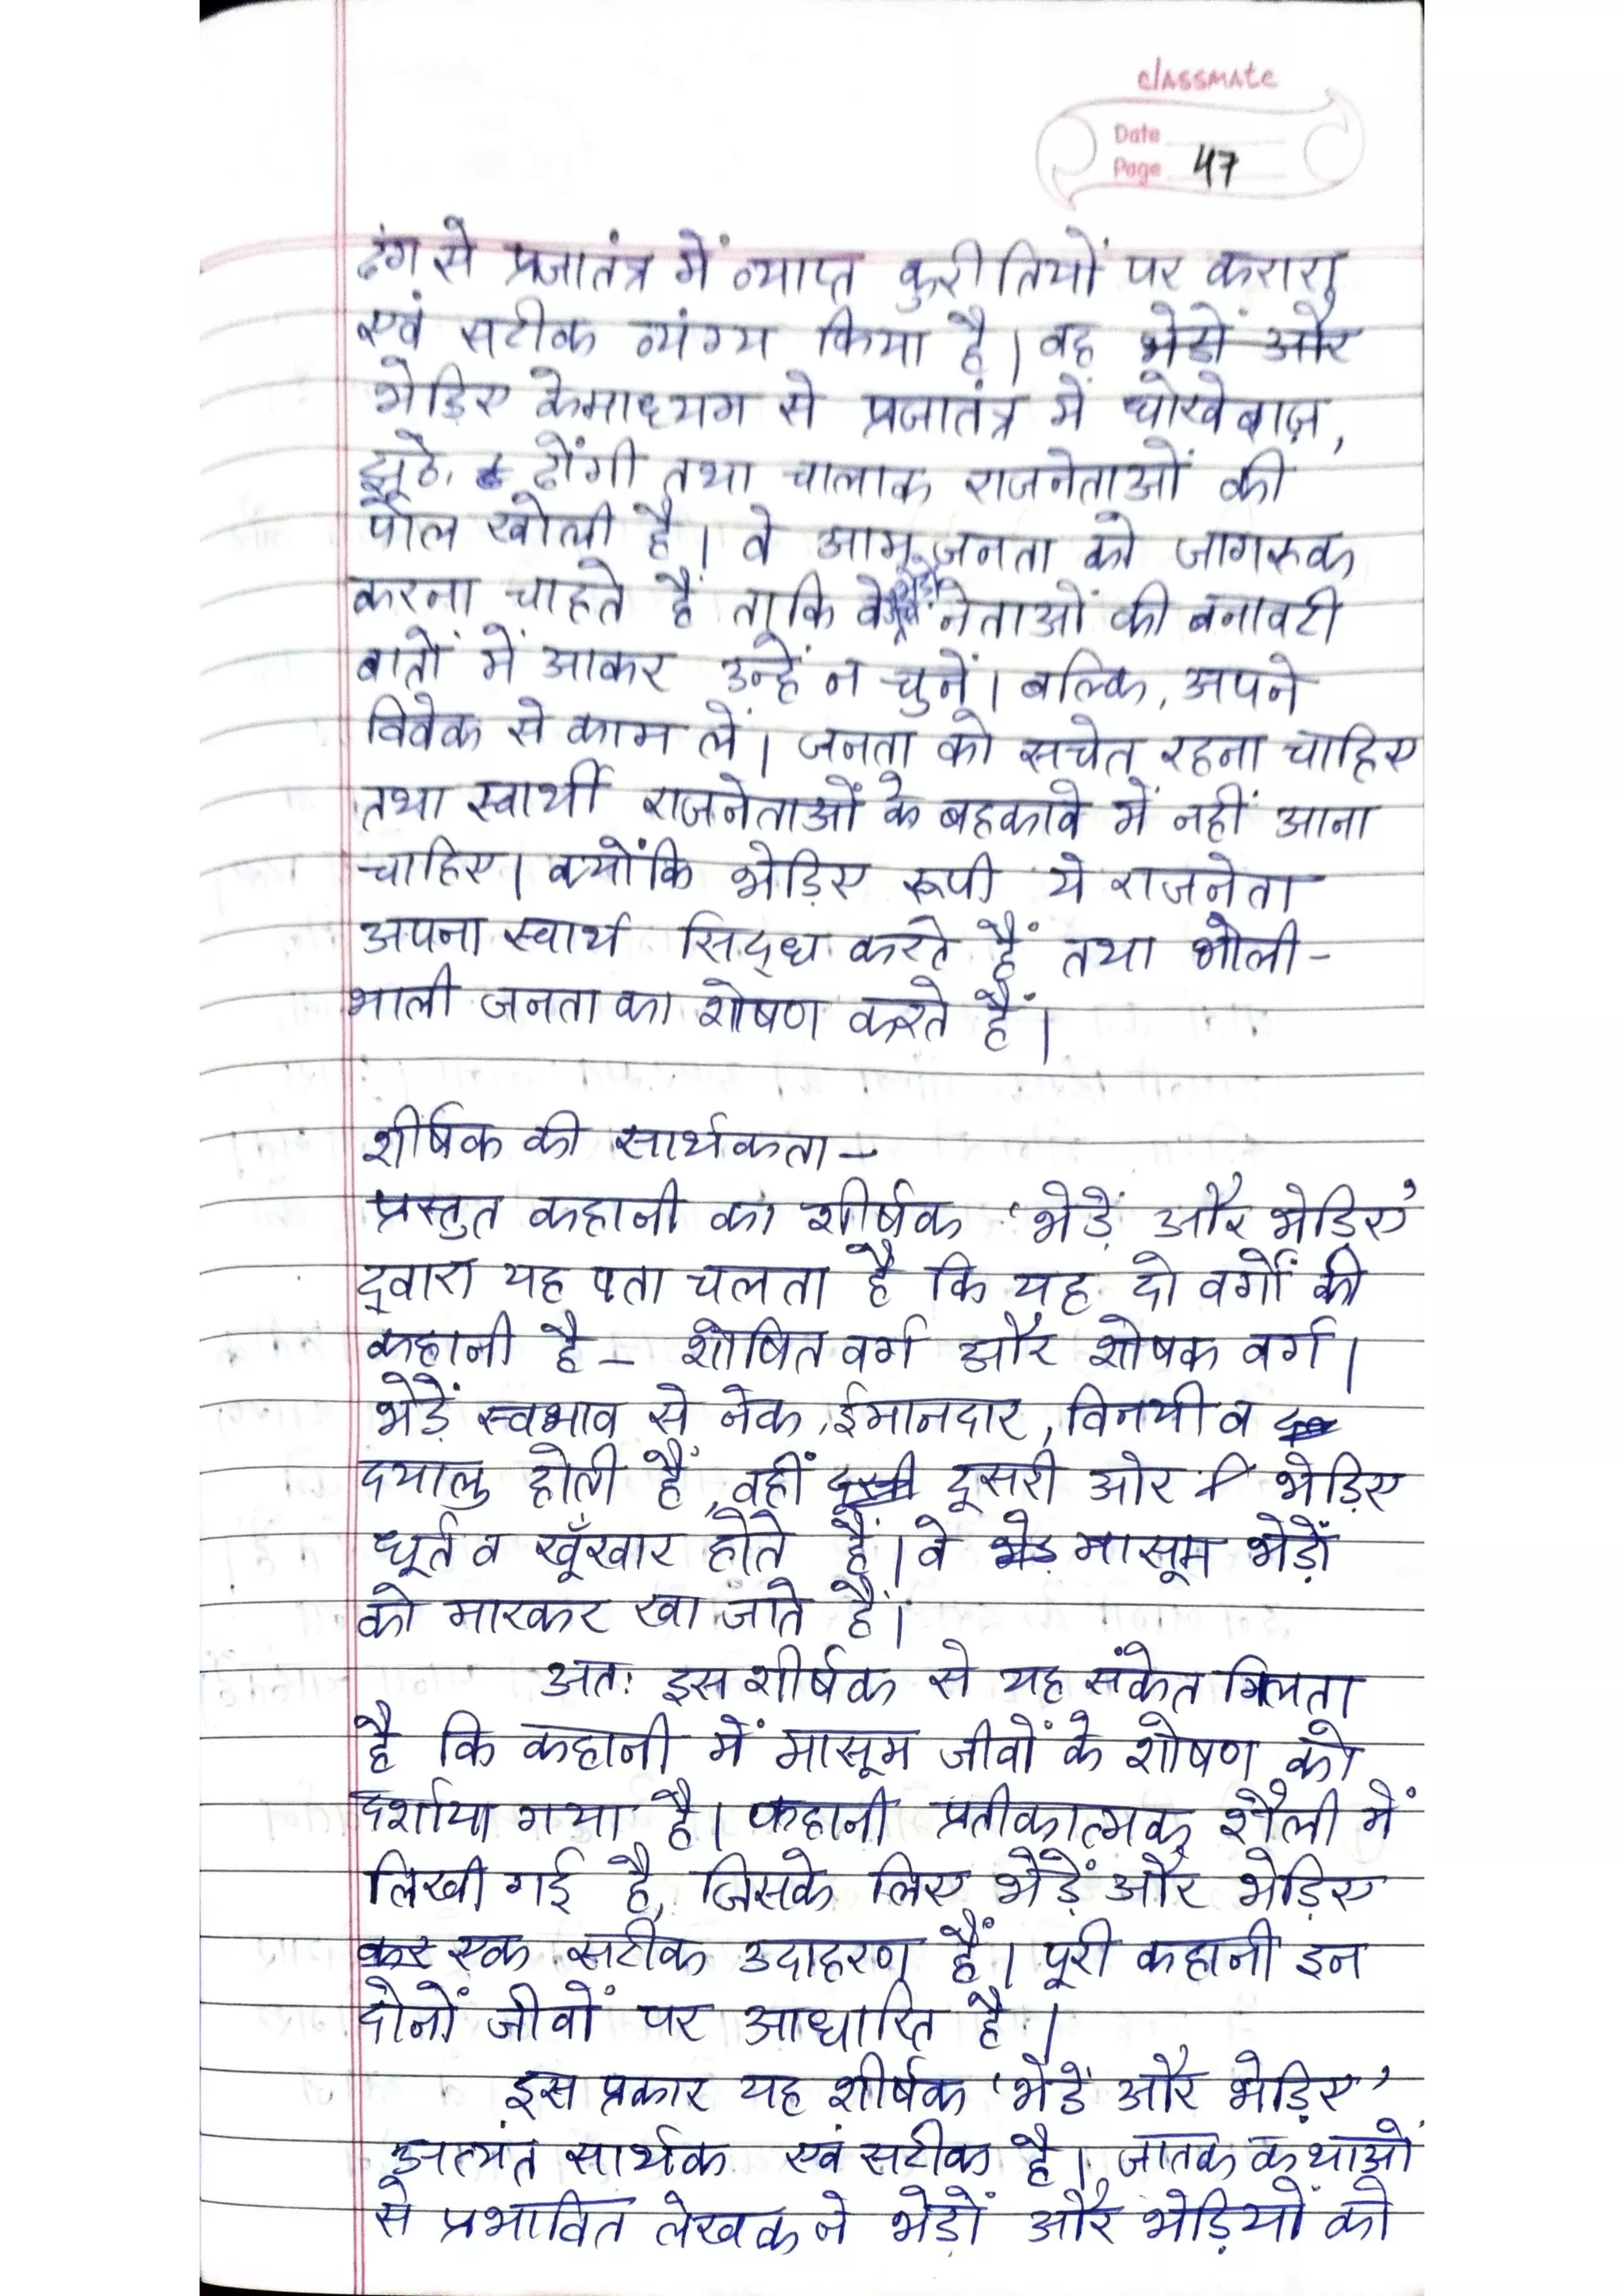 classmate
Date
Page 47
ढंग से प्रजातंत्र में व्याप्त कुरीतियों पर करारा
एवं सटीक व्यंग्य किया है। वह भेडों और
भेड़िए के माध्यम से प्रजातंत्र में धोखेबाज़,
झूठे, ढोंगी तथा चालाक राजनेताओं की
पोल खोली है। वे आम जनता को जागरूक
करना चाहते हैं ताकि वे नेताओं की बनावटी
बातों में आकर उन्हें न चुनें। बल्कि, अपने
विवेक से काम लें। जनता को सचेत रहना चाहिए
तथा स्वार्थी राजनेताओं के बहकावे में नहीं आना
चाहिए। क्योंकि भेड़िए रूपी ये राजनेता
अपना स्वार्थ सिद्ध करते हैं तथा भोली-
भाली जनता का शोषण करते हैं।
शीर्षक की सार्थकता -
प्रस्तुत कहानी का शीर्षक 'भेड़ें और भेड़िए'
द्वारा यह पता चलता है कि यह दो वर्गों की
कहानी है - शोषित वर्ग और शोषक वर्ग।
भेड़ें स्वभाव से नेक, ईमानदार, विनयी व
दयालु होती हैं, वहीं दूसरी ओर भेड़िए
धूर्त व खूँखार होते हैं। वे मासूम भेड़ों
को मारकर खा जाते हैं।
अतः इस शीर्षक से यह संकेत मिलता
है कि कहानी में मासूम जीवों के शोषण को
दर्शाया गया है। कहानी प्रतीकात्मक शैली में
लिखी गई है, जिसके लिए भेड़ें और भेड़िए
एक सटीक उदाहरण हैं। पूरी कहानी इन
दोनों जीवों पर आधारित है।
इस प्रकार यह शीर्षक 'भेडें और भेड़िए'
अत्यंत सार्थक एवं सटीक है। जातक कथाओं
से प्रभावित लेखक ने भेडों और भेड़ियों को